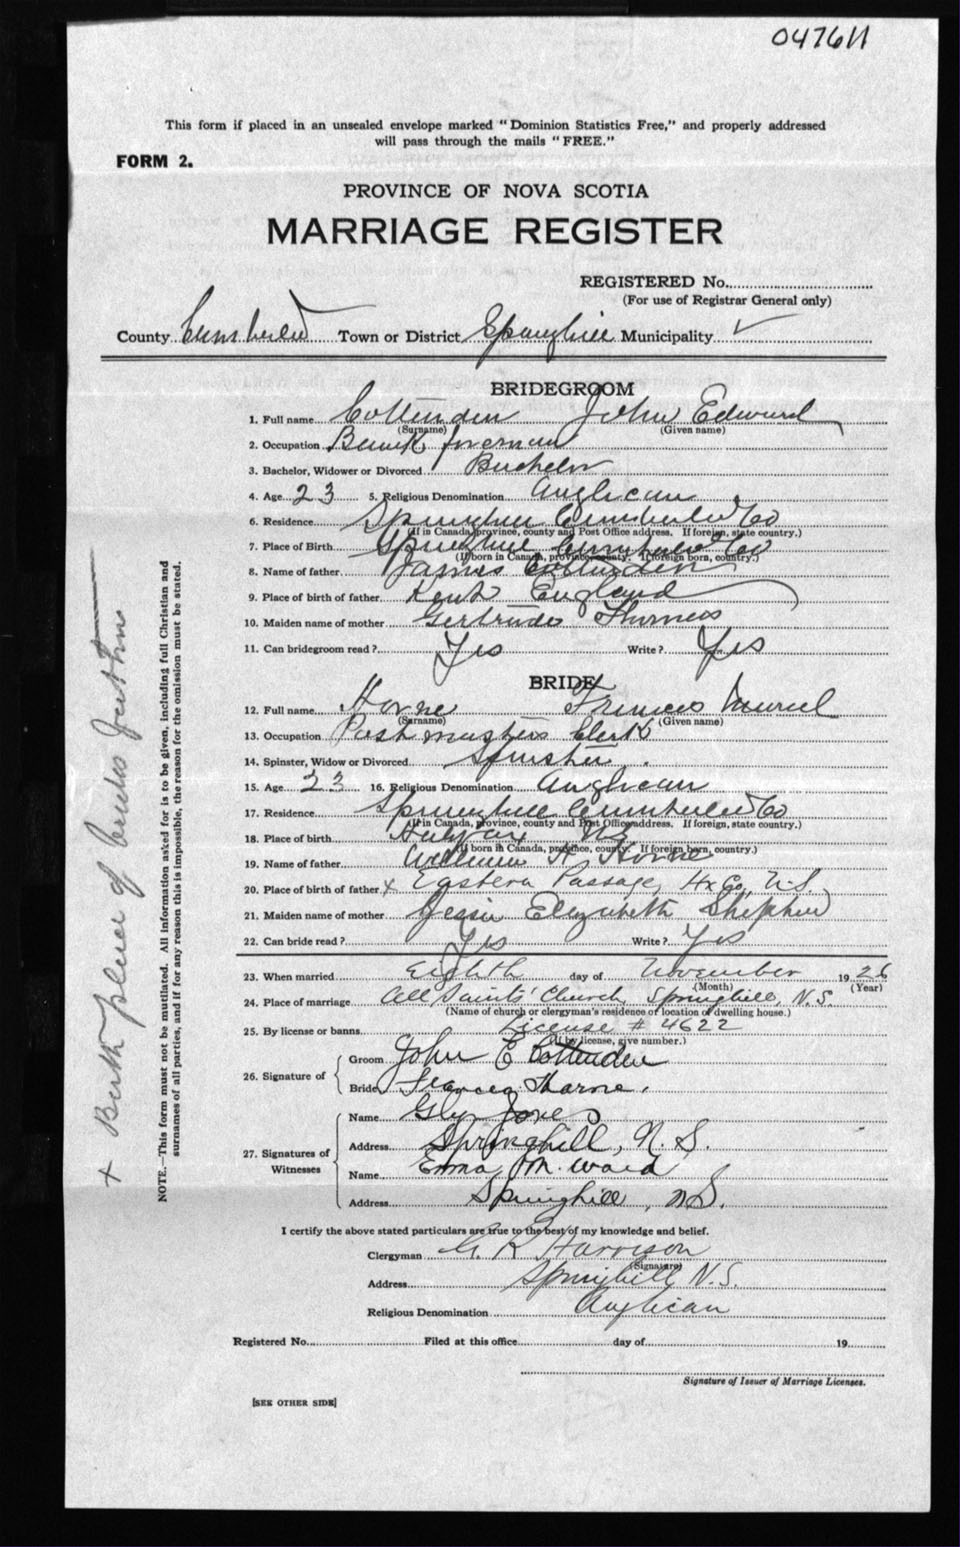 047611
This form if placed in an unsealed envelope marked "Dominion Statistics Free," and properly addressed
will pass through the mails "FREE."
FORM 2.
PROVINCE OF NOVA SCOTIA
MARRIAGE REGISTER
REGISTERED No.
(For use of Registrar General only)
County Cumberland Town or District Springhill Municipality ✓
BRIDEGROOM
1. Full name Cottenden John Edward
(Surname) (Given name)
2. Occupation foreman
3. Bachelor, Widower or Divorced Bachelor
4. Age 23 5. Religious Denomination Anglican
6. Residence Springhill Cumberland Co
(If in Canada, province, county and Post Office address. If foreign, state country.)
7. Place of Birth Springhill Cumberland Co
(If born in Canada, province, county. If foreign born, country.)
8. Name of father James Cottenden
9. Place of birth of father Kent England
10. Maiden name of mother Gertrude Thomas
11. Can bridegroom read? Yes Write? Yes
BRIDE
12. Full name Horne Frances Muriel
(Surname) (Given name)
13. Occupation Postmasters Clerk
14. Spinster, Widow or Divorced Spinster
15. Age 23 16. Religious Denomination Anglican
17. Residence Springhill Cumberland Co
(If in Canada, province, county and Post Office address. If foreign, state country.)
18. Place of birth Halifax NS
(If born in Canada, province, county. If foreign born, country.)
19. Name of father William H Horne
20. Place of birth of father x Eastern Passage, Hx Co, N.S.
21. Maiden name of mother Jessie Elizabeth Shephard
22. Can bride read? Yes Write? Yes
23. When married Eighth day of November 1926
(Month) (Year)
24. Place of marriage All Saints' Church, Springhill, N.S.
(Name of church or clergyman's residence or location of dwelling house.)
25. By license or banns License # 4622
(If by license, give number.)
26. Signature of
Groom John E Cottenden
Bride Frances Horne.
27. Signatures of Witnesses
Name Glyn Jones
Address Springhill, N.S.
Name Emma M. Ward
Address Springhill, N.S.
I certify the above stated particulars are true to the best of my knowledge and belief.
Clergyman G. R. Harrison
(Signature)
Address Springhill, N.S.
Religious Denomination Anglican
Registered No. Filed at this office day of 19
Signature of Issuer of Marriage Licenses.
[SEE OTHER SIDE]
NOTE.—This form must not be mutilated. All information asked for is to be given, including full Christian and
surnames of all parties, and if for any reason this is impossible, the reason for the omission must be stated.
+ Birth place of brides father